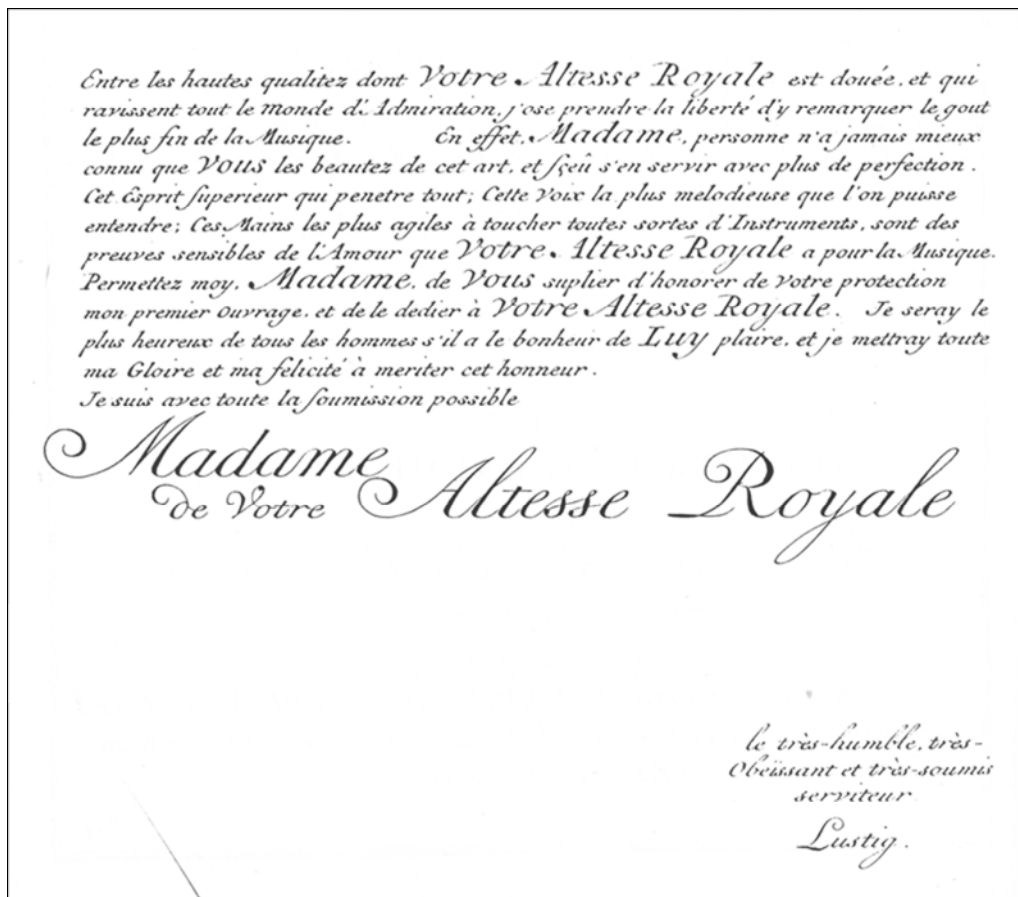 Entre les hautes qualitez dont Votre Altesse Royale est douée, et qui
ravissent tout le monde d'Admiration, j'ose prendre la liberté d'y remarquer le gout
le plus fin de la Musique. En effêt, Madame, personne n'a jamais mieux
connu que VOUS les beautez de cet art, et sçeû s'en servir avec plus de perfection.
Cet Esprit superieur qui penetre tout; Cette Voix la plus melodieuse que l'on puisse
entendre; Ces Mains les plus agiles à toucher toutes sortes d'Instruments, sont des
preuves sensibles de l'Amour que Votre Altesse Royale a pour la Musique.
Permettez moy, Madame, de Vous suplier d'honorer de Votre protection
mon premier Ouvrage, et de le dedier à Votre Altesse Royale. Je seray le
plus heureux de tous les hommes s'il a le bonheur de Luy plaire, et je mettray toute
ma Gloire et ma felicité à meriter cet honneur.
Je suis avec toute la soumission possible
Madame
de Votre Altesse Royale
le très-humble, très-
Obeïssant et très-soumis
serviteur
Lustig.